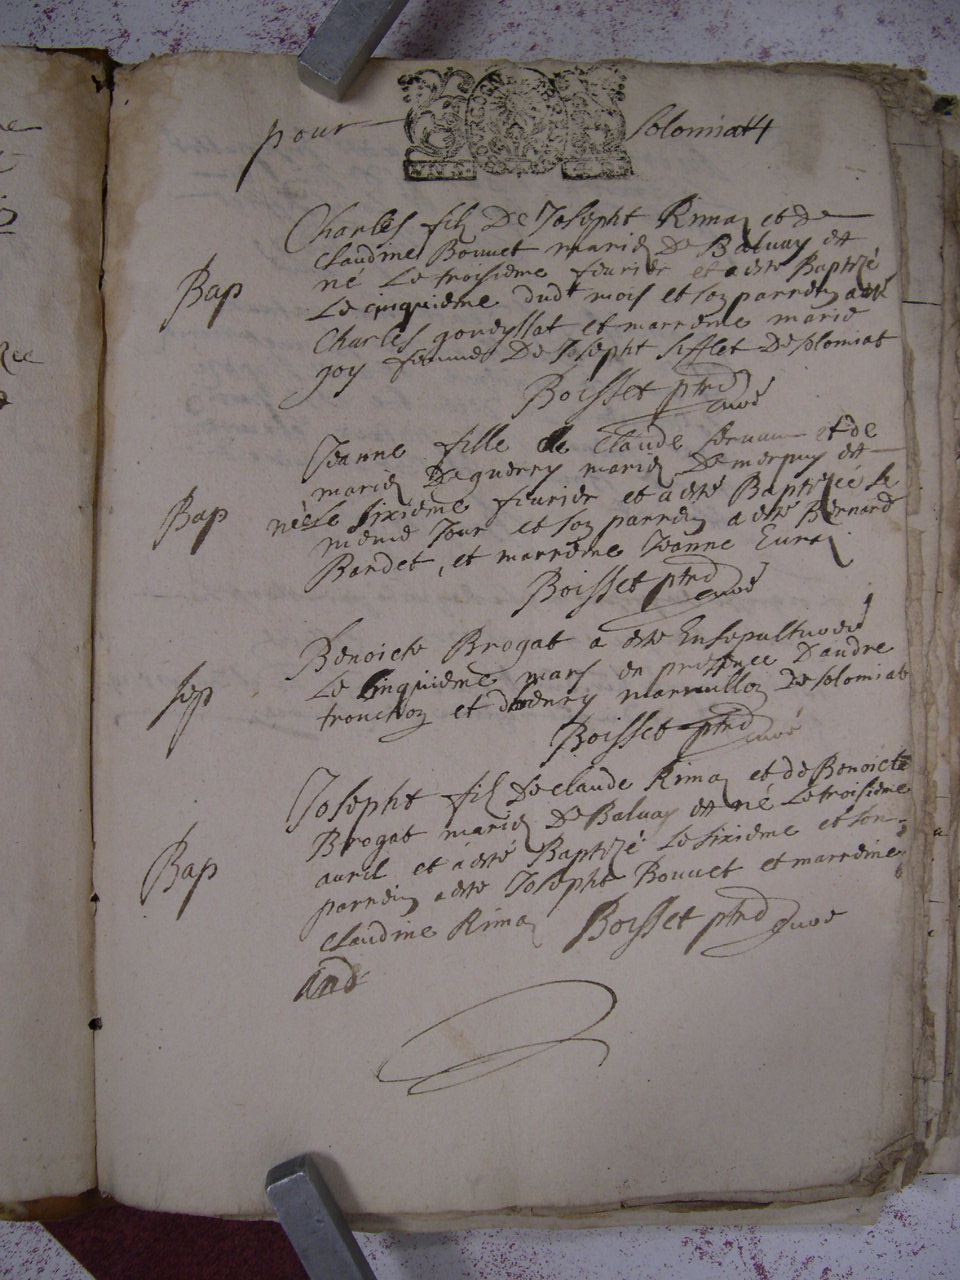 pour solomiat 4
Charles fils De Joseph Rimaz et de
Claudine Bouuet mariez De Baluay est
Bap né Le troisieme feurier et a esté Baptizé
Le cinquieme dudt mois et son parrein a esté
Charles goueyssat et marreme marie
goy femme De Joseph sifflet De solomiat
Boisset ptre curé
Jeanne fille de Claude seruan et de
marie Deguerry mariez De merpuy est
Bap née Le sixieme feurier et a esté Baptizée le
meme Jour et son parrein a esté Bernard
Bardet, et marreme Jeanne Eura
Boisset ptre curé
Benoicte Brogat a este Ensepulturée
sep Le Cinquieme mars en presence D'andre
tronchoz et de Denry marmilloz De solomiat
Boisset ptre curé
Joseph fils De Claude Rimaz et de Benoicte
Brogat mariez De Baluay est né Le troisieme
Bap auril et a esté Baptizé Le sixieme et son
parrein a este Joseph Bouuet et marreine
Claudine Rimaz Boisset ptre curé